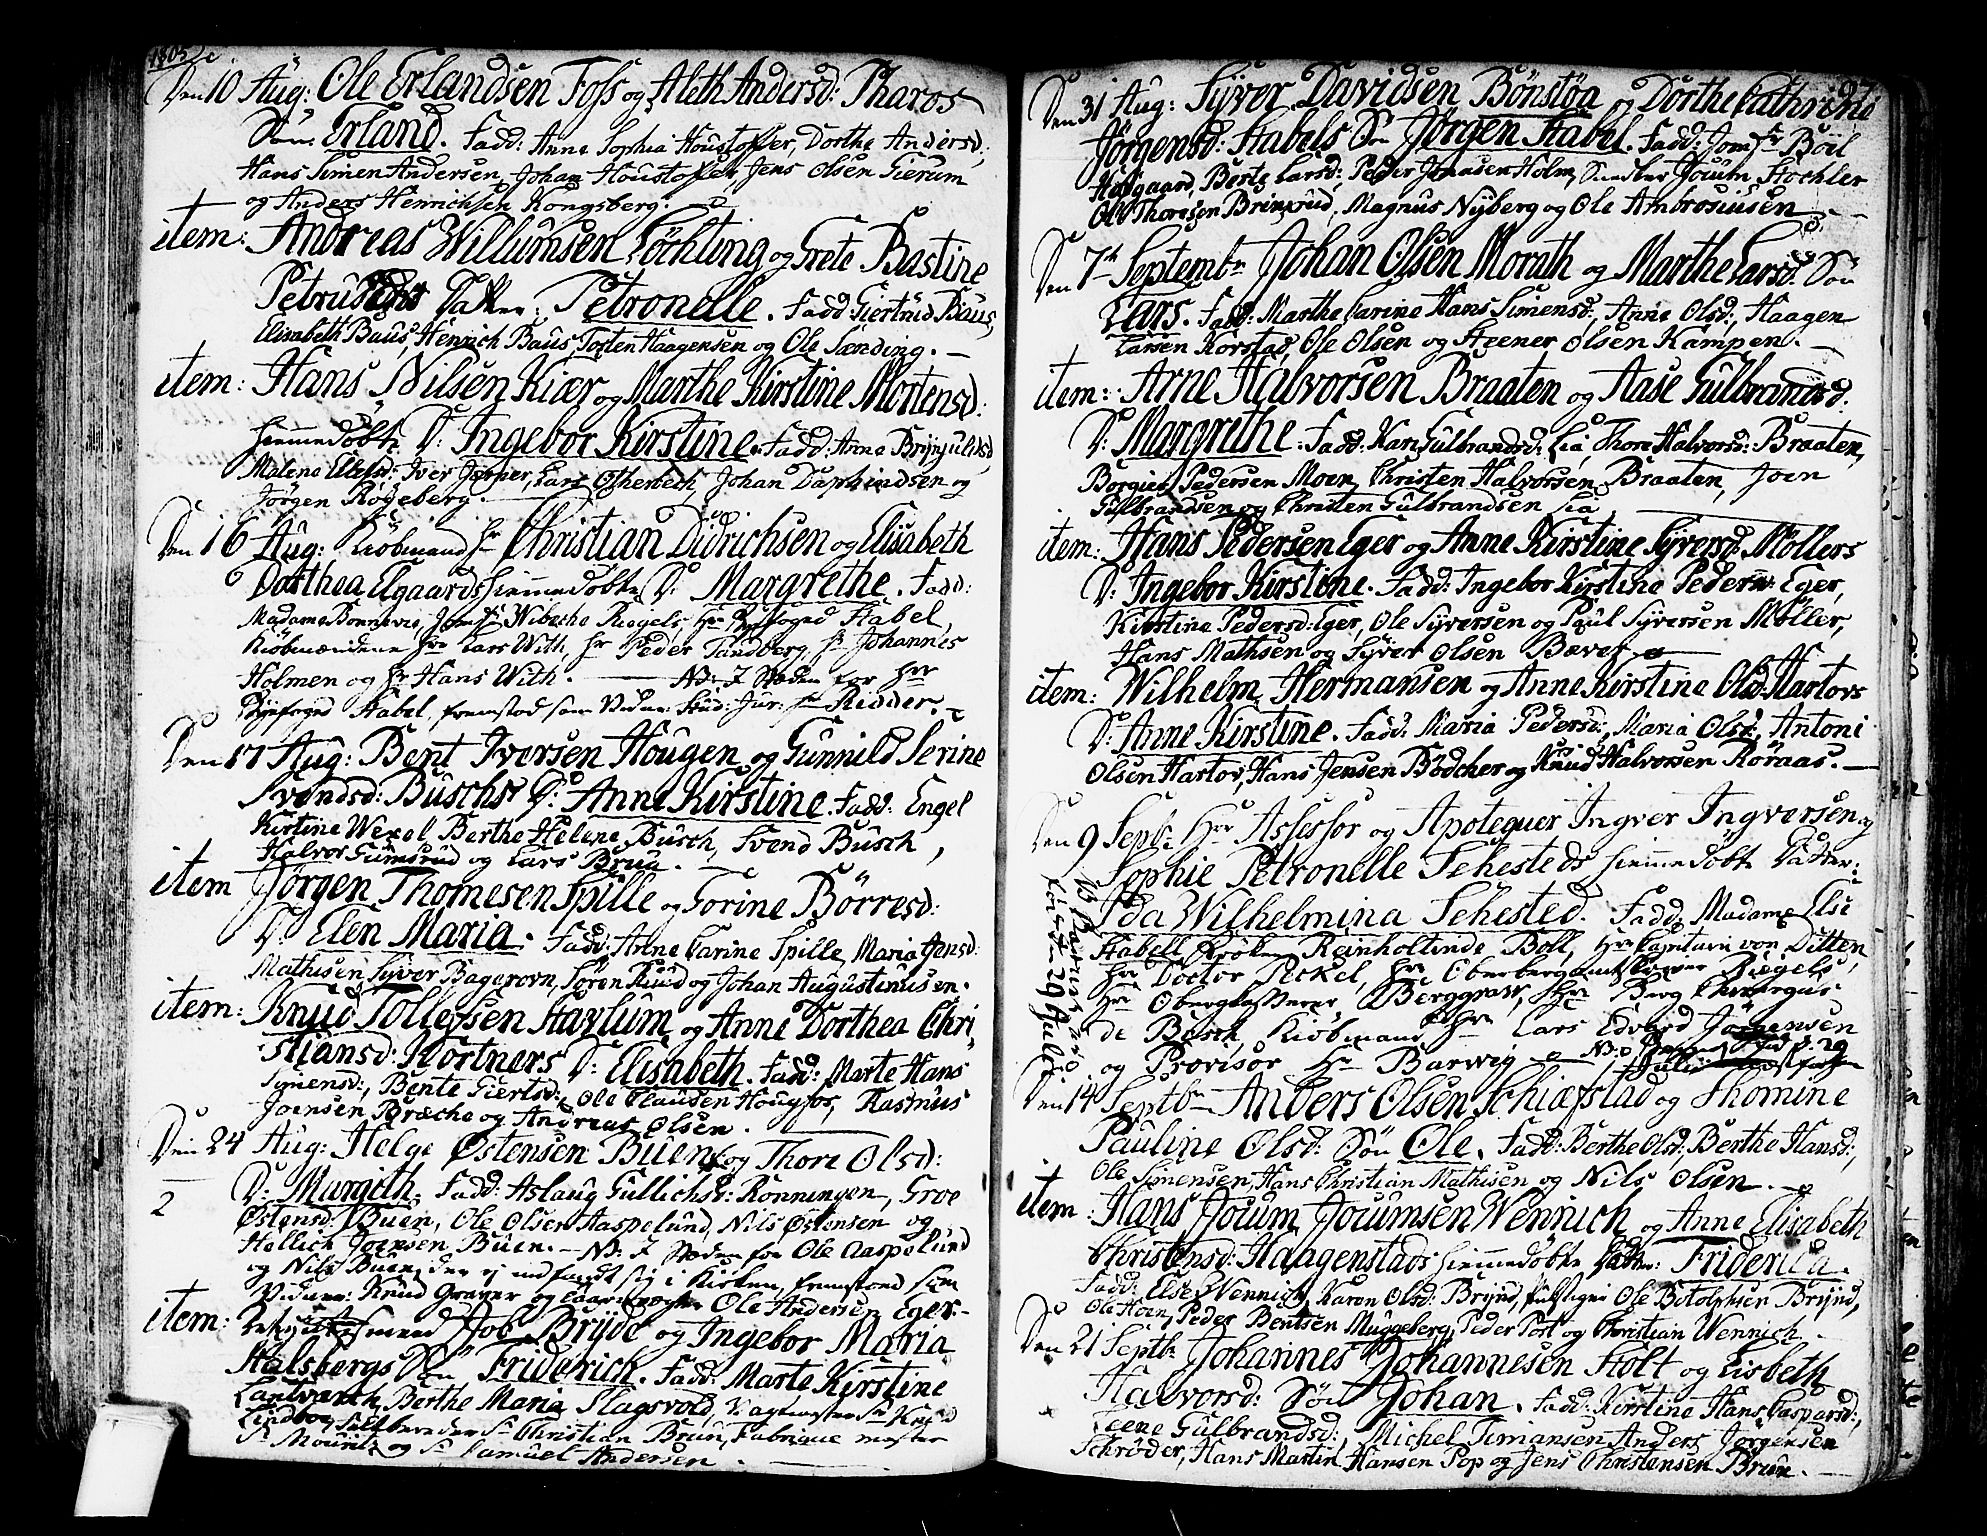 1805
Den 10 Aug: Ole Erlandsen Foss og Aleth Andersd: Tharos
Søn: Erland. Fadd: Anne Sophia Houstofler, Dorthe Andersd:
Hans Simen Andersen, Johan Houstofler, Jens Olsen Gierum
og Anders Henrichsen Kongsberg.
item: Andreas Willumsen Løchting og Grete Bastine
Datter: Petronelle. Fadd: Giertrud Baus,
Elisabeth Baus, Henrich Baus, Torsten Haagensen og Ole Sending.
item: Hans Nilsen Kiær og Marthe Kirstine Mortensd:
hiemmedøbte D: Ingebor Kirstine. Fadd: Anne Brynjulvsd,
Malene Ellefsd: Iver Jesper, Lars Otherbech, Johan Daphindsen og
Jørgen Rogeberg.
Den 16 Aug: Kiøbmand Hr Christian Didrichsen og Elisabeth
Dorthea Elgaards hiemmedøbte D: Margrethe. Fadd:
Madame Bonnevie, Jomfr Wibeche Riegels, Hr Byefoged Stabel,
Kiøbmændene Hr Lars With, Hr Peder Tandberg, Hr Johannes
Holmen og Hr Hans With. NB: I Steden for Hr
Byefoged Stabel, fremstod som Vidne Stud: Jur: Hr Ridder.
Den 17 Aug: Bent Iversen Hougen og Gunnild Serine
Svendsd: Buschs D: Anne Kirstine. Fadd: Engel
Kirstine Wexel, Berthe Helene Busch, Svend Busch,
Halvor Gumsrud og Lars Brun.
item Jørgen Thomesen Spille og Gorine Børresd:
D: Elen Maria. Fadd: Anne Carine Spille, Maria Jensd:
Mathisen, Syver Bagerovn, Søren Ruud og Johan Augustinusen.
item: Knud Tollefsen Stavlum og Anne Dorthea Chri,
stiansd: Hortners D: Elisabeth. Fadd: Marte Hans
Symensd:, Bente Giertsd:, Ole Clausen Hougfos, Rasmus
Joensen Bræche og Andreas Olsen.
Den 24 Aug: Helge Østensen Buen og Thore Olsd:
2 D: Margith. Fadd: Aslaug Gullichsd: Rønningen, Groe
Østensd: Buen, Ole Olsen Haspelund, Nils Østensen og
Hellich Joensen Buen. NB: I Steden for Ole Aaspelund
og Nils Buen, der ej indfandt sig i Kirken, fremstoed som
Vidner: Knud Graver og Ole Andersen Eger.
item: Job Bryde og Ingebor Maria
Halsbergs Søn Friderich. Fadd: Marte Kirstine
Berthe Maria Slagsvold, Vagtmester Hr Knud
Lindboe, Hr Christian Brun, Fabrique mester
Hr Mouritz og Hr Samuel Andersen.
97
Den 31 Aug: Syver Davidsen Bønstøa og Dorthe Cathrine
Jørgensd: Stabels Søn Jørgen Stabel. Fadd: Jomfr Boil
Høegaard, Berte Larsd: Peder Jonasen Holm, Jocum Stochler
Ole Thoresen Brinxrud, Magnus Nyberg og Ole Ambrosiusen.
Den 7de Septembr Johan Olsen Morath og Marthe Larsd: Søn
Lars. Fadd: Marthe Carine Hans Simensd:, Anne Olsd:, Haagen
Larsen Korstad, Ole Olsen og Steener Olsen Kampen.
item: Arne Halvorsen Braaten og Aase Gulbrandsd:
D: Margrethe. Fadd: Kari Gulbrandsd: Lia, Thore Halvorsd: Braaten,
Borgier Pedersen Moen, Christen Halvorsen Braaten, Joen
Gulbrandsen og Christen Gulbrandsen Lia
item: Hans Pedersen Eger og Anne Kirstine Syversd: Mollers
D: Ingebor Kirstine. Fadd: Ingebor Kirstine Peders: Eger,
Kirstine Pedersd: Eger, Ole Syversen og Paul Syversen Møller,
Hans Mathsen og Syver Olsen Bæver
item: Wilhelm Hermansen og Anne Kirstine Olsd: Hastovs
D: Anne Kirstine. Fadd: Maria Pedersd:, Maria Olsd:, Antoni
Olsen Hastov, Hans Jensen Bødcher og Knud Halvorsen Røraas.
Den 9 Septbr Hr Assessor og Apoteqver Ingver Ingversen og
Sophie Petronelle Sehesteds hiemmedøbte Datter:
Ida Wilhelmina Sehested. Fadd: Madame Else
Stabell, Frøken Reinholtinde Boll, Hr Capitain von Ditten,
Hr Doctor Peckel, Hr Oberbergamtskriver Riegels,
Hr Oberguldberer Berggrav, Hr Berg Chirurgus
de Besch, Kiøbmand Hr Lars Edvard Jørgensen
og Provisor Hr Barweg
NB: Barnet er fød den 29 Julii
Den 14 Septbr Anders Olsen Schiæfstad og Thomine
Pauline Olsd: Søn Ole. Fadd: Berthe Olsd:, Berthe Hansd:,
Ole Simensen, Hans Christian Mathisen og Nils Olsen.
item: Hans Jocum Jocumsen Wennich og Anne Elisabeth
Christensd: Haagenstads hiemmedøbte Datter: Friderica.
Fadd: Else Wennich, Karen Olsd: Brynd, Ole Botolphsen Brynd,
Ole Hoen, Peder Bentsen Muggeberg, Peder Post og Christian Wennich.
Den 21 Septbr Johannes Johannesen Holt og Lisbeth
Halvorsd: Søn Johan. Fadd: Kirstine Hans Caspersd:,
Leene Gulbrandsd:, Michel Simansen, Anders Jørgensen
Schrøder, Hans Martin Hansen Pop og Jens Christensen Brun.